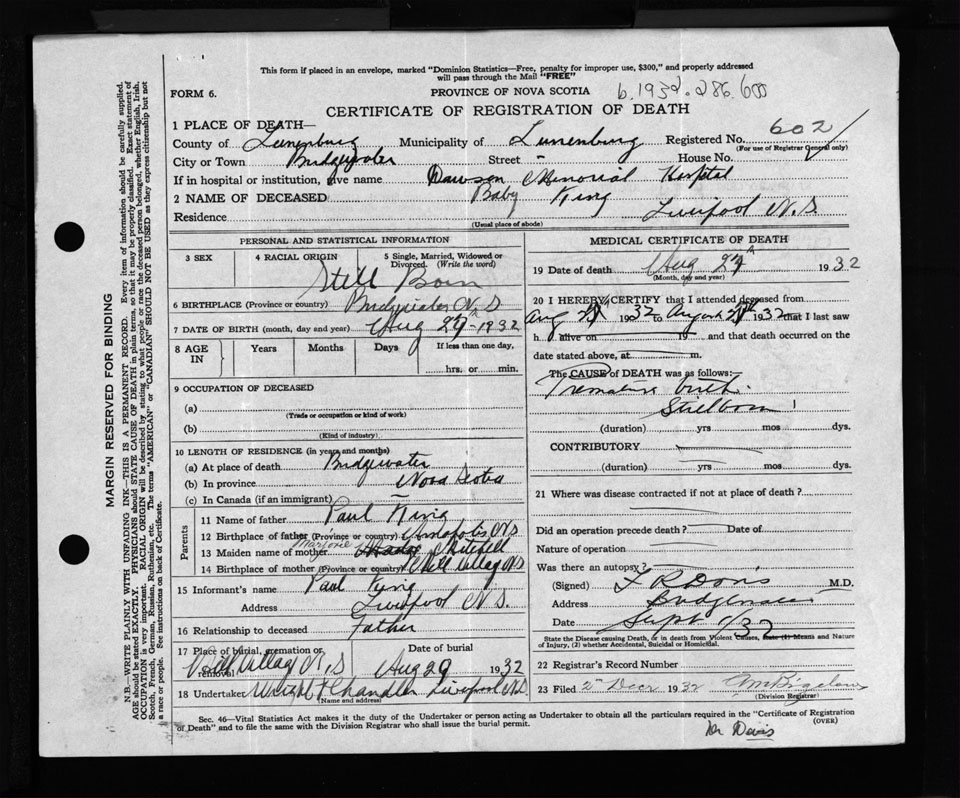 This form if placed in an envelope, marked "Dominion Statistics—Free, penalty for improper use, $300," and properly addressed
will pass through the Mail "FREE"
FORM 6. PROVINCE OF NOVA SCOTIA b.1932.286.600
CERTIFICATE OF REGISTRATION OF DEATH
1 PLACE OF DEATH—
County of Lunenburg Municipality of Lunenburg Registered No. 602
(For use of Registrar General only)
City or Town Bridgewater Street - House No.
If in hospital or institution, give name Dawson Memorial Hospital
2 NAME OF DECEASED Baby King
Residence Liverpool N.S.
(Usual place of abode)
PERSONAL AND STATISTICAL INFORMATION
3 SEX 4 RACIAL ORIGIN 5 Single, Married, Widowed or
Divorced. (Write the word)
Still Born
6 BIRTHPLACE (Province or country) Bridgewater N.S
7 DATE OF BIRTH (month, day and year) Aug 29 1932
8 AGE IN Years Months Days If less than one day,
hrs. or min.
9 OCCUPATION OF DECEASED
(a)
(Trade or occupation or kind of work)
(b)
(Kind of industry)
10 LENGTH OF RESIDENCE (in years and months)
(a) At place of death Bridgewater
(b) In province Nova Scotia
(c) In Canada (if an immigrant) —
Parents
11 Name of father Paul King
12 Birthplace of father (Province or country) N.S
13 Maiden name of mother Marjorie Mitchell
14 Birthplace of mother (Province or country) Mill Village N.S
15 Informant's name Paul King
Address Liverpool N.S.
16 Relationship to deceased Father
17 Place of burial, cremation or removal Mill Village N.S
Date of burial Aug 29 1932
18 Undertaker Chandler Liverpool N.S.
(Name and address)
MEDICAL CERTIFICATE OF DEATH
19 Date of death Aug 1932
(Month, day and year)
20 I HEREBY CERTIFY that I attended deceased from
Aug 1932 to August 1932 that I last saw
h alive on 19 and that death occurred on the
date stated above, at m.
The CAUSE of DEATH was as follows:
Premature birth.
Stillborn
(duration) yrs mos dys.
CONTRIBUTORY
(duration) yrs mos dys.
21 Where was disease contracted if not at place of death?
Did an operation precede death? Date of
Nature of operation
Was there an autopsy?
(Signed) M.D.
Address Bridgewater
Date Sept 1/32
State the Disease causing Death, or in death from Violent Causes, State (1) Means and Nature
of Injury, (2) whether Accidental, Suicidal or Homicidal.
22 Registrar's Record Number
23 Filed 2 Decr 1932
(Division Registrar)
Sec. 46—Vital Statistics Act makes it the duty of the Undertaker or person acting as Undertaker to obtain all the particulars required in the "Certificate of Registration
of Death" and to file the same with the Division Registrar who shall issue the burial permit. (OVER)
Dr Davis
MARGIN RESERVED FOR BINDING
N.B.—WRITE PLAINLY WITH UNFADING INK—THIS IS A PERMANENT RECORD. Every item of information should be carefully supplied.
AGE should be stated EXACTLY. PHYSICIANS should STATE CAUSE OF DEATH in plain terms, so that it may be properly classified. Exact statement of
OCCUPATION is very important. RACIAL ORIGIN will be described by stating to what people or race the deceased person belonged, whether English, Irish,
Scotch, French, German, Russian, Ruthenian, etc. The terms "AMERICAN" or "CANADIAN" SHOULD NOT BE USED as they express citizenship but not
a race or people. See instructions on back of Certificate.